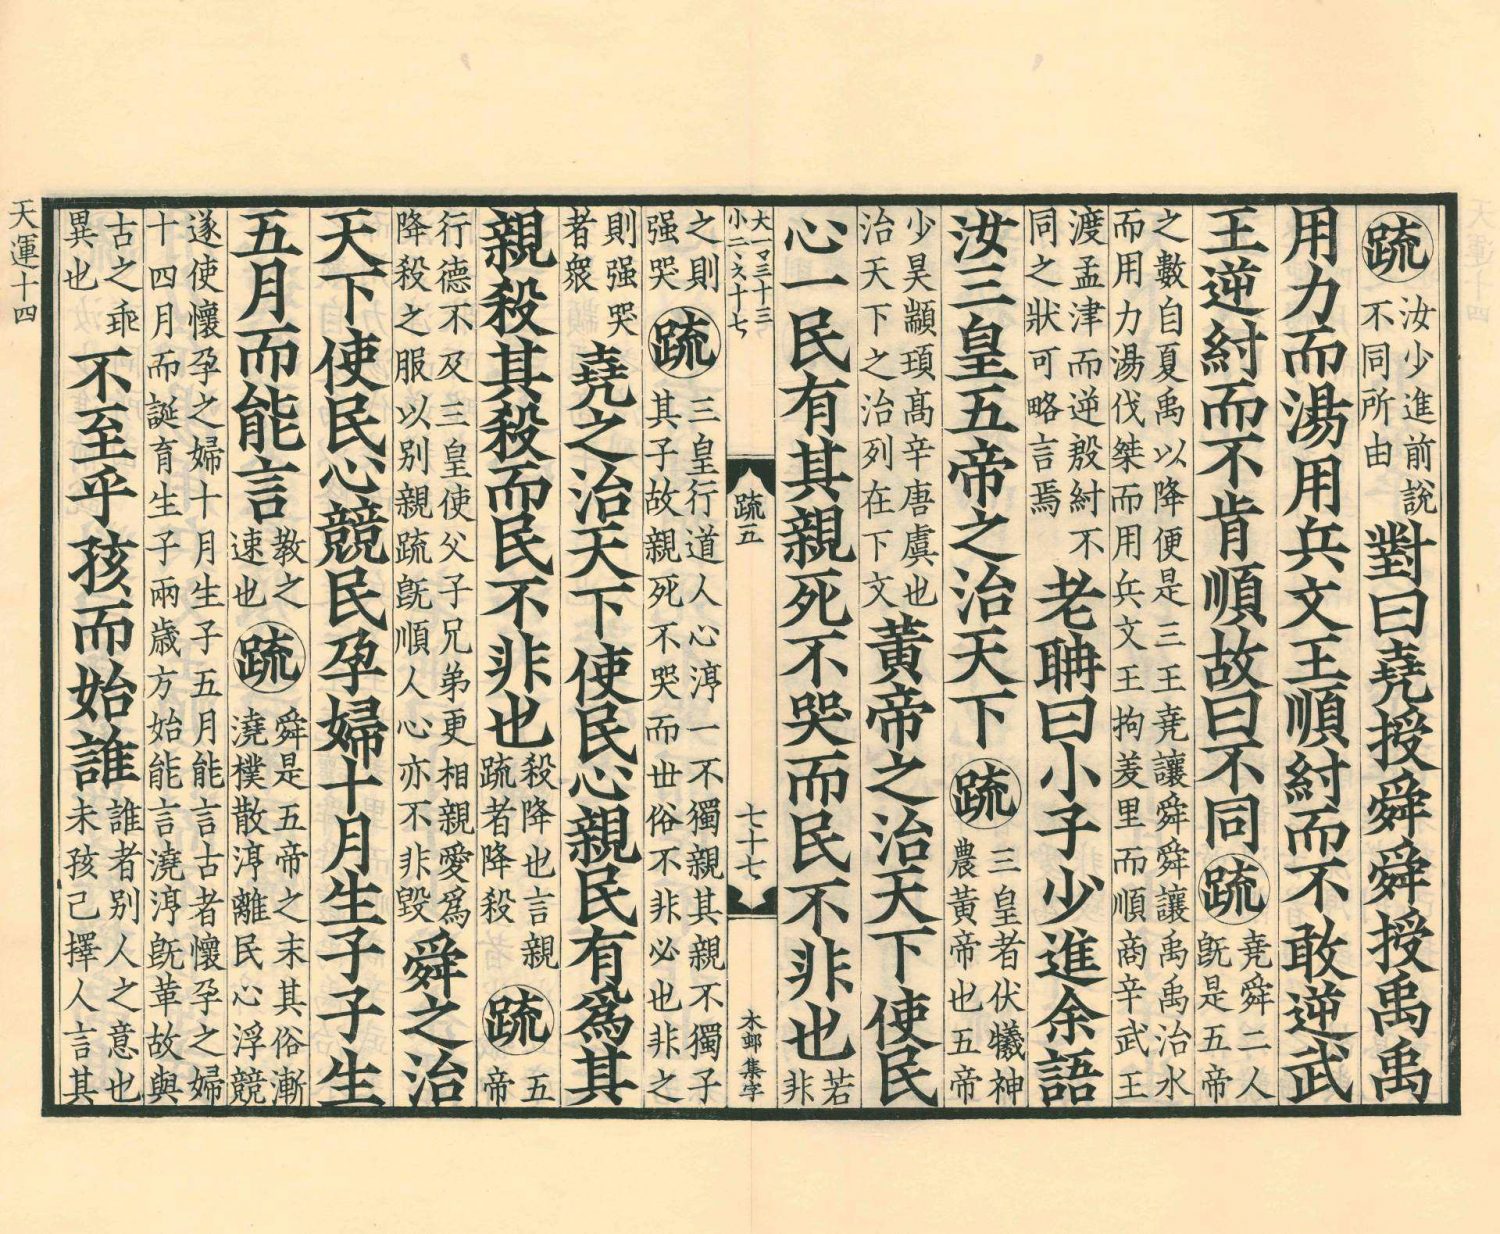 疏汝少進前說不同所由對曰堯授舜舜授禹禹
用力而湯用兵文王順紂而不敢逆武
王逆紂而不肯順故曰不同疏堯舜二人旣是五帝
之數自夏禹以降便是三王堯讓舜舜讓禹禹治水
而用力湯伐桀而用兵文王拘羑里而順商辛武王
渡孟津而逆殷紂不同之狀可略言焉老聃曰小子少進余語
汝三皇五帝之治天下疏三皇者伏犧神農黃帝也五帝
少昊顓頊髙辛唐虞也治天下之治列在下文黃帝之治天下使民
心一民有其親死不哭而民不非也若非
疏五
七十七
之則强哭疏三皇行道人心淳一不獨親其親不獨子其子故親死不哭而世俗不非必也非之
則强哭者衆堯之治天下使民心親民有爲其
親殺其殺而民不非也殺降也言親疏者降殺疏五帝
行德不及三皇使父子兄弟更相親愛爲降殺之服以別親疏旣順人心亦不非毀舜之治
天下使民心競民孕婦十月生子子生
五月而能言教之速也疏舜是五帝之末其俗漸澆樸散淳離民心浮競
遂使懷孕之婦十月生子五月能言古者懷孕之婦
十四月而誕育生子兩歳方始能言澆淳旣革故與
古之乖異也不至乎孩而始誰誰者別人之意也未孩己擇人言其
天運十四